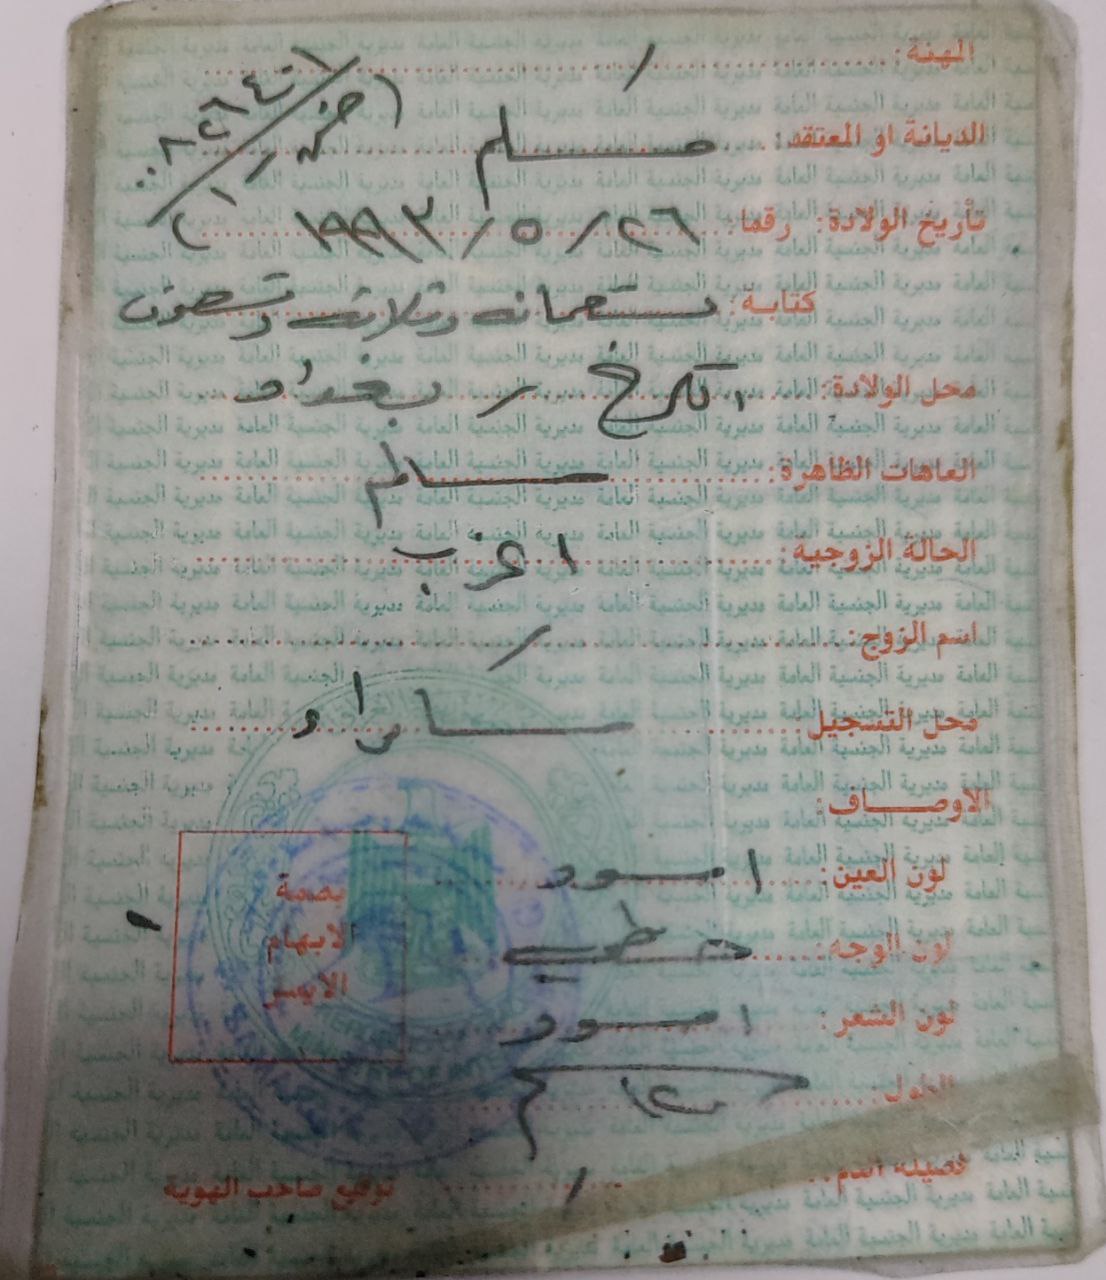 المهنة: /
الديانة او المعتقد: مسلم
تأريخ الولادة: رقما: ٢٦ / ٥ / ١٩٩٣
كتابة: تسعمائة وثلاثة وتسعون
محل الولادة: الكرخ / بغداد
العاهات الظاهرة: سالم
الحالة الزوجية: اعزب
اسم الزوج: /
محل التسجيل: سامراء
الاوصاف:
لون العين: اسود
لون الوجه: حنطي
لون الشعر: اسود
الطول:
فصيلة الدم: /
بصمة
الابهام
الايسر
توقيع صاحب الهوية
مديرية الجنسية العامة